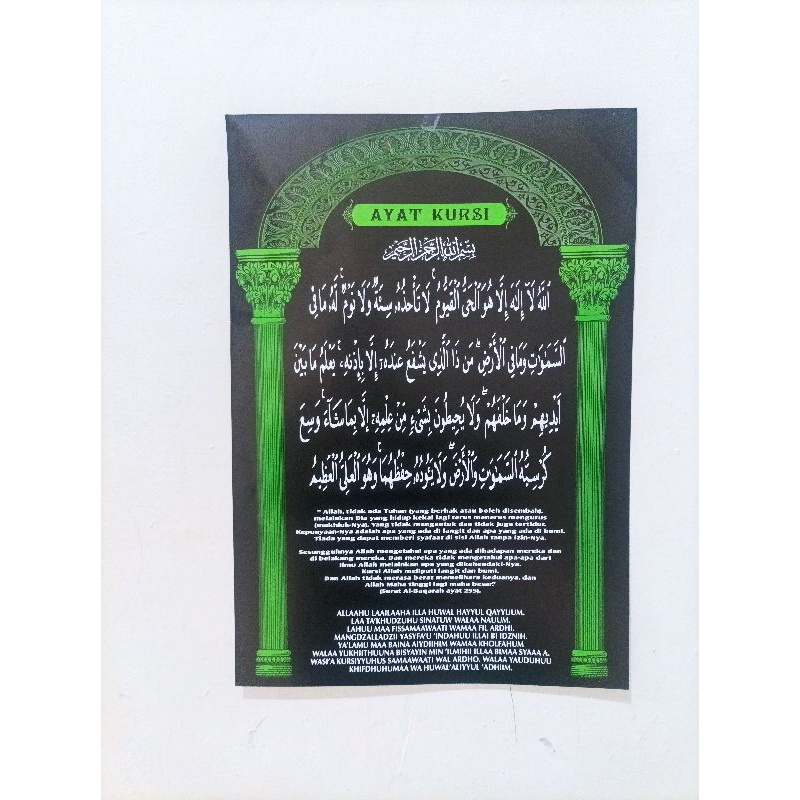 AYAT KURSI
بِسْمِ اللهِ الرَّحْمٰنِ الرَّحِيْمِ
اَللهُ لَآ إِلٰهَ إِلَّا هُوَ الْحَيُّ الْقَيُّوْمُ ۚ لَا تَأْخُذُهُۥ سِنَةٌ وَلَا نَوْمٌ ۚ لَهُۥ مَا فِى
السَّمٰوٰتِ وَمَا فِى الْأَرْضِ ۗ مَن ذَا الَّذِى يَشْفَعُ عِنْدَهُۥٓ إِلَّا بِإِذْنِهِۦ ۚ يَعْلَمُ مَا بَيْنَ
أَيْدِيهِمْ وَمَا خَلْفَهُمْ ۖ وَلَا يُحِيطُونَ بِشَىْءٍ مِّنْ عِلْمِهِۦٓ إِلَّا بِمَا شَآءَ ۚ وَسِعَ
كُرْسِيُّهُ السَّمٰوٰتِ وَالْأَرْضَ ۖ وَلَا يَـُٔودُهُۥ حِفْظُهُمَا ۚ وَهُوَ الْعَلِىُّ الْعَظِيمُ
" Allah, tidak ada Tuhan (yang berhak atau boleh disembah),
melainkan Dia yang hidup kekal lagi terus menerus mengurus
(makhluk-Nya). Yang tidak mengantuk dan tidak juga tertidur.
Kepunyaan-Nya adalah apa yang ada di langit dan apa yang ada di bumi.
Tiada yang dapat memberi syafaat di sisi Allah tanpa izin-Nya.
Sesungguhnya Allah mengetahui apa yang ada dihadapan mereka dan
di belakang mereka. Dan mereka tidak mengetahui apa-apa dari
ilmu Allah melainkan apa yang dikehendaki-Nya.
Kursi Allah meliputi langit dan bumi.
Dan Allah tidak merasa berat memelihara keduanya, dan
Allah Maha tinggi lagi maha besar."
(Surat Al-Baqarah ayat 255).
ALLAAHU LAAILAAHA ILLA HUWAL HAYYUL QAYYUUM.
LAA TA'KHUDZUHU SINATUW WALAA NAUUM.
LAHUU MAA FISSAMAAWAATI WAMAA FIL ARDHI.
MANGDZALLADZII YASYFA'U 'INDAHUU ILLAI BI IDZNIH.
YA'LAMU MAA BAINA AIYDIIHIM WAMAA KHOLFAHUM
WALAA YUKHIITHUUNA BISYAYIN MIN 'ILMIHII ILLAA BIMAA SYAAA A.
WASI'A KURSIYYUHUS SAMAAWAATI WAL ARDHO. WALAA YAUDUHUU
KHIFDHUHUMAA WA HUWAL'ALIYYUL 'ADHIIM.